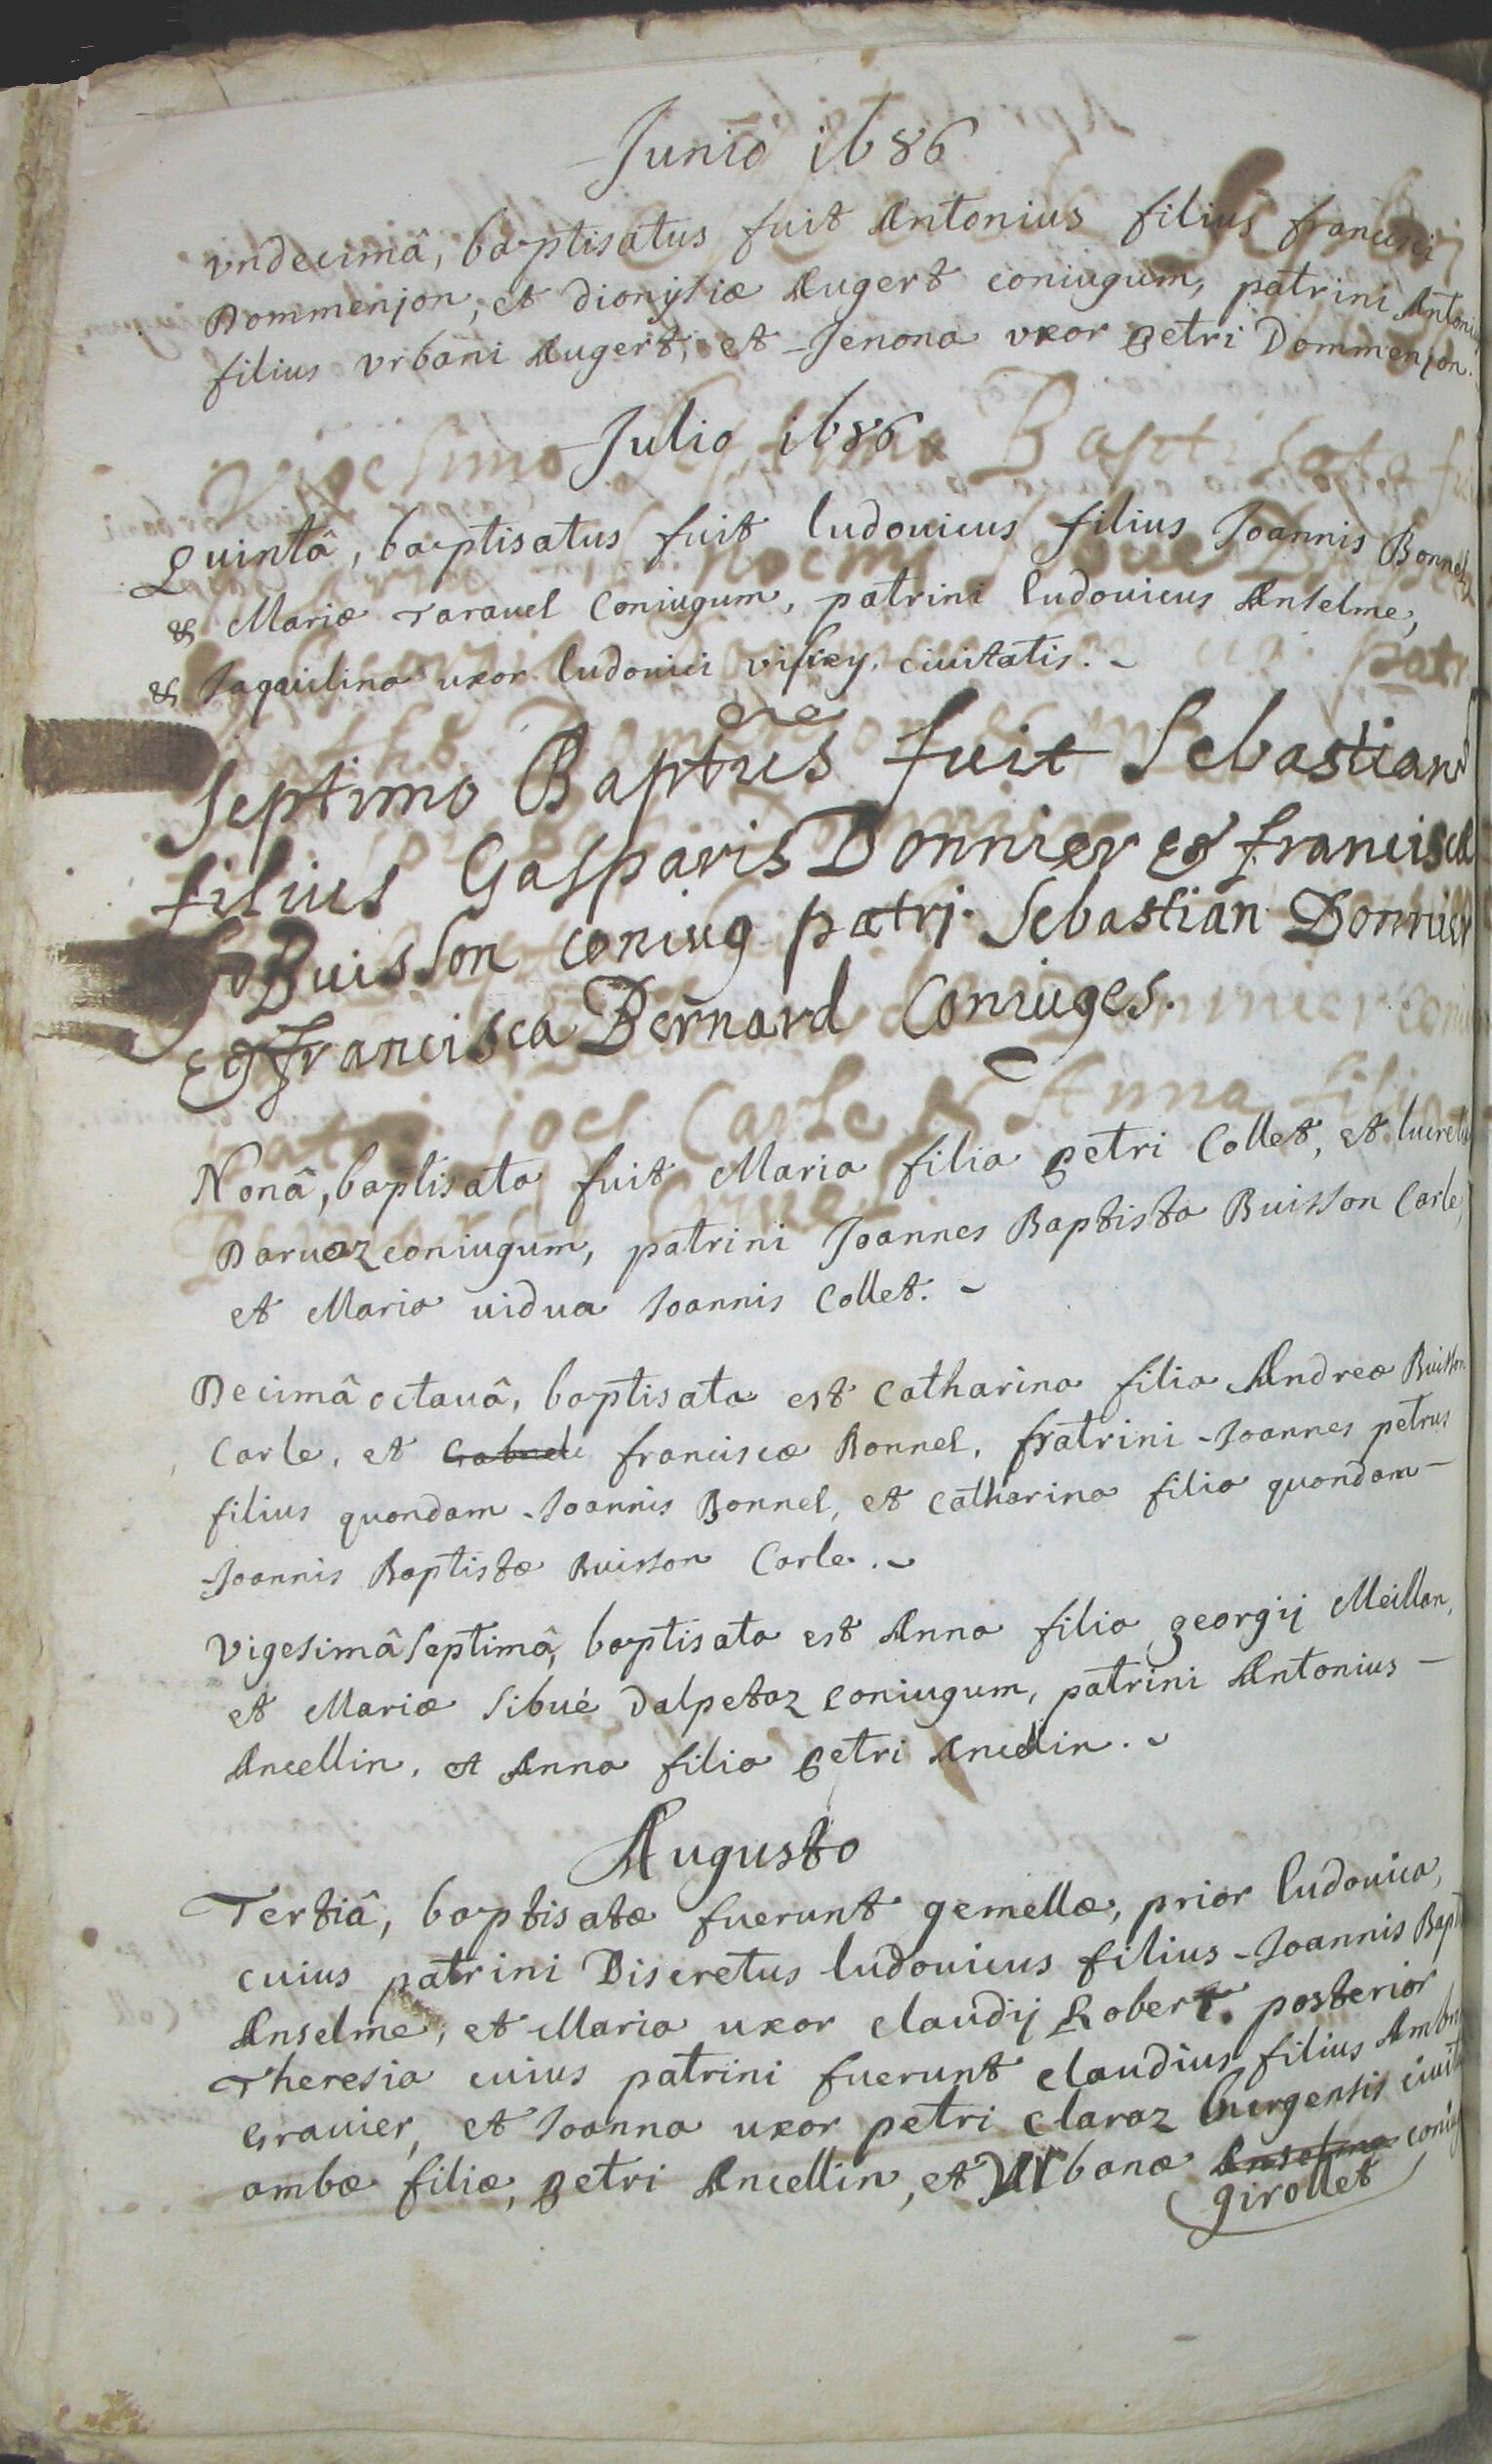 Junio 1686
vndecimâ, baptisatus fuit Antonius filius francisci
Dommenjon, et dionysiæ Augert coniugum, patrini Antonius
filius vrbani Augert, et Jenona vxor petri Dommenjon.
Julio 1686
Quintâ, baptisatus fuit ludouicus filius Joannis Bonnel
& Mariæ Tarauel Coniugum, patrini ludouicus Anselme,
& Jaquilina uxor ludouici ciuitatis.
Septimo Baptus fuit Sebastian
filius Gasparis Donnier et franciscæ
Buisson coniug patrj. Sebastian Donnier
et francisca Bernard Coniuges.
Nonâ, baptisata fuit Maria filia petri Collet, et lucretiæ
Daruez coniugum, patrini Joannes Baptista Buisson Carle,
et Maria uidua Joannis Collet.
Decimâ octauâ, baptisata est Catharina filia Andreæ Buisson
Carle, et franciscæ Bonnel, fratrini Joannes petrus
filius quondam Joannis Bonnel, et Catharina filia quondam
Joannis Baptistæ Buisson Carle.
Vigesimâ Septimâ, baptisata est Anna filia georgij Meillan,
et Mariæ Sibué Dalpetaz coniugum, patrini Antonius
Ancellin, et Anna filia petri Ancellin.
Augusto
Tertiâ, baptisatæ fuerunt gemellæ, prior ludouica,
cuius patrini Discretus ludouicus filius Joannis Bapt
Anselme, et Maria uxor claudij Robert. posterior
Theresia cuius patrini fuerunt claudius filius Ambr
Grauier, et Joanna uxor petri claraz burgensis ciuit
ambæ filiæ, petri Ancellin, et Urbanæ Anselme coniug
girollet